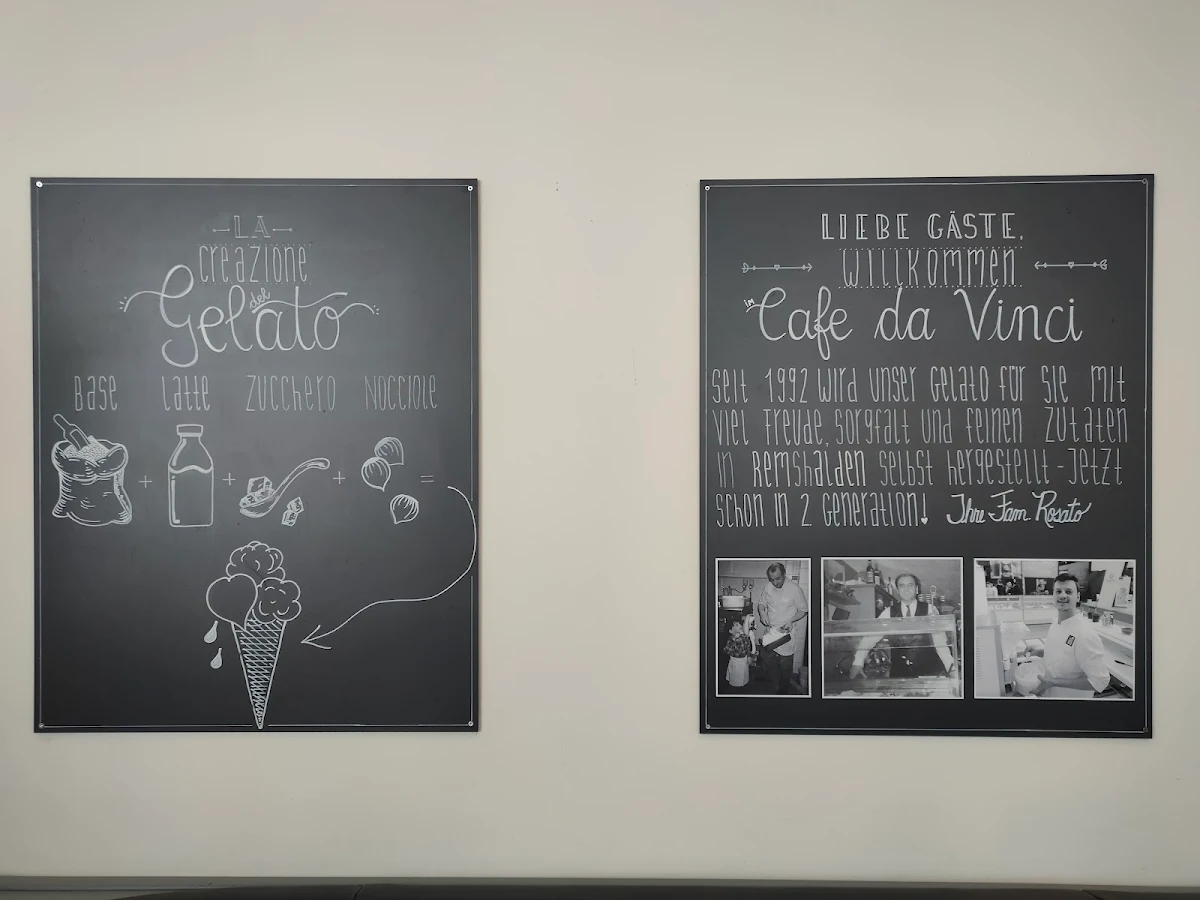 LA
creazione
del
Gelato
Base Latte Zucchero Nocciole
+ + + =
LIEBE GÄSTE,
Willkommen
im
Cafe da Vinci
Seit 1992 wird unser Gelato für Sie mit
viel Freude, Sorgfalt und feinen Zutaten
in Remshalden selbst hergestellt - Jetzt
schon in 2 Generation! Ihre Fam. Rosato